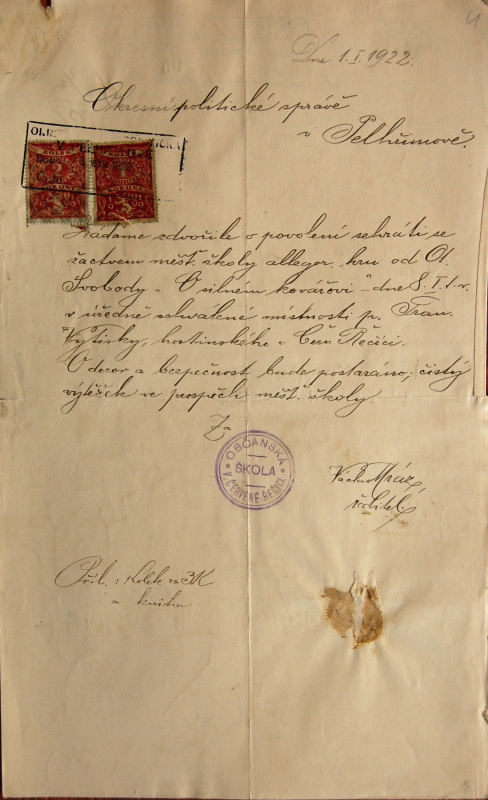 4
Dne 1.I.1922.
Okresní politické správě
v Pelhřimově.
KOLEK KOLEK
Žádáme zdvořile o povolení sehráti se
žactvem měšť. školy allegor. hru od Ot.
Svobody „O silném kovářovi“ dne 8.I.t.r.
v úředně schválené místnosti p. Fran.
Vytisky, hostinského v Červ. Řečici.
O dozor a bezpečnost bude postaráno; čistý
výtěžek ve prospěch měšť. školy.
Za
OBČANSKÁ
ŠKOLA
V ČERVENÉ ŘEČICI
Václav Mráz,
ředitel.
Příl.: kolek za 3K
a kniha